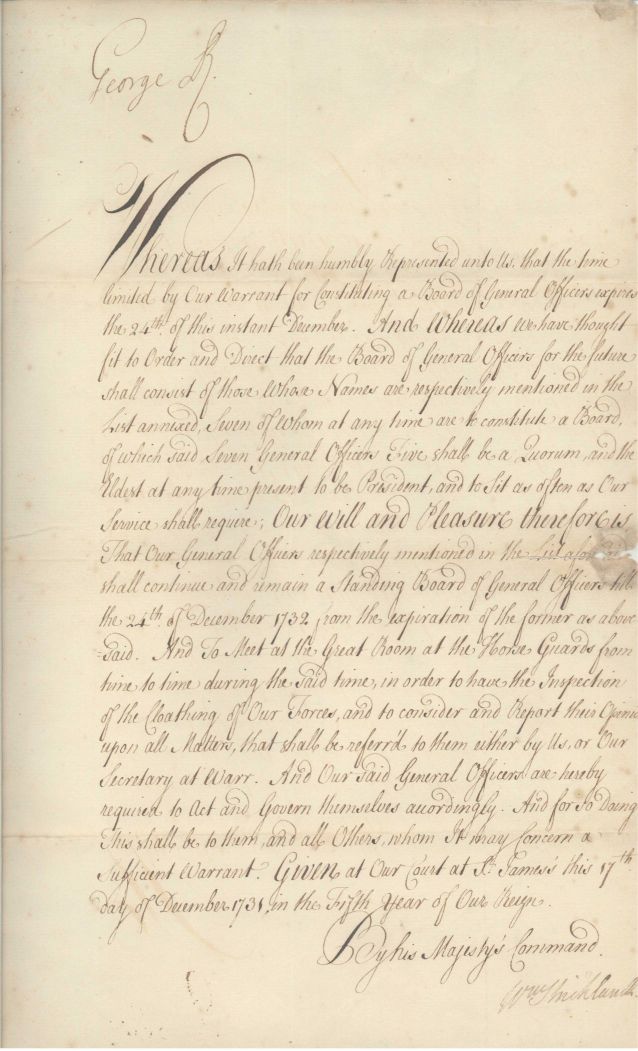 George R.
Whereas It hath been humbly Represented unto Us, that the time
limited by Our Warrant for Constituting a Board of General Officers expires
the 24th. of this instant December. And Whereas We have thought
fit to Order and Direct that the Board of General Officers for the future
shall consist of those Whose Names are respectively mentioned in the
List annexed, Seven of Whom at any time are to constitute a Board,
of which said Seven General Officers Five shall be a Quorum, and the
Eldest at any time present to be President, and to Sit as often as Our
Service shall require; Our Will and Pleasure therefore is,
That Our General Officers respectively mentioned in the List
shall continue and remain a Standing Board of General Officers till
the 24th. of December 1732 from the expiration of the former as above
-said. And To Meet at the Great Room at the Horse Guards from
time to time during the said time, in order to have the Inspection
of the Cloathing of Our Forces, and to consider and Report their
upon all Matters, that shall be referr'd to them either by Us, or Our
Secretary at Warr. And Our said General Officers are hereby
required to Act and Govern themselves accordingly. And for So Doing
This shall be to them, and all Others, whom It may Concern a
Sufficient Warrant. Given at Our Court at St. James's this 17th
day of December 1731, in the Fifth Year of Our Reign.
By his Majesty's Command.
Wm Strickland.